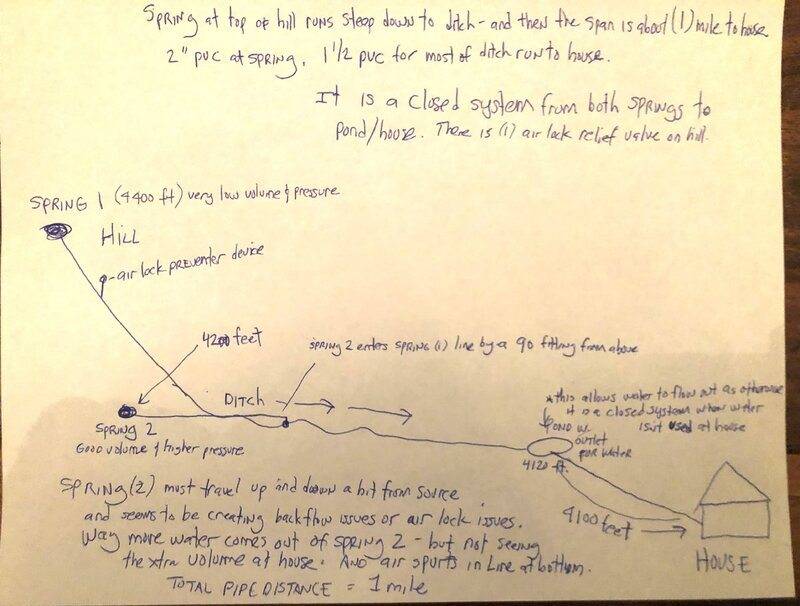 SPRING at top of hill runs steep down to ditch - and then the span is about (1) mile to house
2" PVC at SPRING, 1 1/2 PVC for most of ditch run to house.
It is a closed system from both springs to
pond/house. There is (1) air lock relief valve on hill.
SPRING 1 (4400 ft) very low volume & pressure
HILL
air lock PREVENTER device
4200 feet
SPRING 2 enters SPRING (1) line by a 90 fitting from above
DITCH
SPRING 2
GOOD volume & higher pressure
*this allows water to flow out as otherwise
it is a closed system when water
isn't used at house
POND w.
outlet
FOR WATER
4120 ft.
SPRING (2) must travel up and down a bit from source
and seems to be creating backflow issues or air lock issues.
Way more water comes out of SPRING 2 - but not seeing
the xtra volume at house. AND air spurts in Line at bottom.
4100 feet
HOUSE
TOTAL PIPE DISTANCE = 1 mile